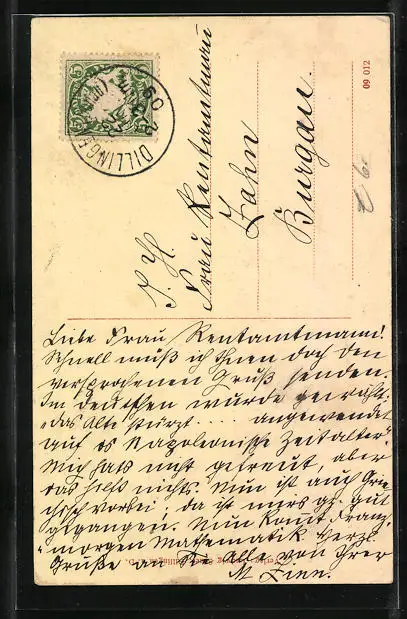 DILLINGEN
09
5
S. H.
Frau Rentamtmann
Zahn
Burgau.
09 012
Liebe Frau Rentamtmann!
Schnell muß ich Ihnen doch den
versprochenen Gruß senden.
Im deutschen wurde gewählt:
"das Alte stürzt.... angewendet
auf das Napoleonische Zeitalter"
Mich hats nicht gefreut, aber
das hilft nichts. Nun ist auch Grie
chisch vorbei, da ist mirs gz. gut
gegangen. Nun kommt Franz.
morgen Mathematik. Herzl.
Grüße an Sie Alle von Ihrer
M. Zinn.